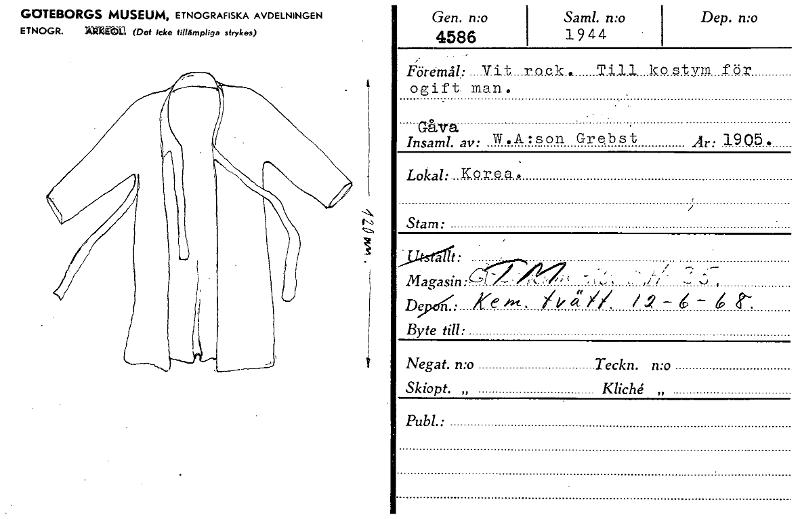 GÖTEBORGS MUSEUM, ETNOGRAFISKA AVDELNINGEN
ETNOGR. ARKEOL. (Det icke tillämpliga strykes)
120 cm.
Gen. n:o Saml. n:o Dep. n:o
4586 1944
Föremål: Vit rock. Till kostym för
ogift man.
Gåva
Insaml. av: W.A:son Grebst År: 1905.
Lokal: Korea.
Stam:
Utställt:
Magasin: GTM 35.
Depon.: Kem. tvätt. 12-6-68.
Byte till:
Negat. n:o Teckn. n:o
Skiopt. „ Kliché „
Publ.: